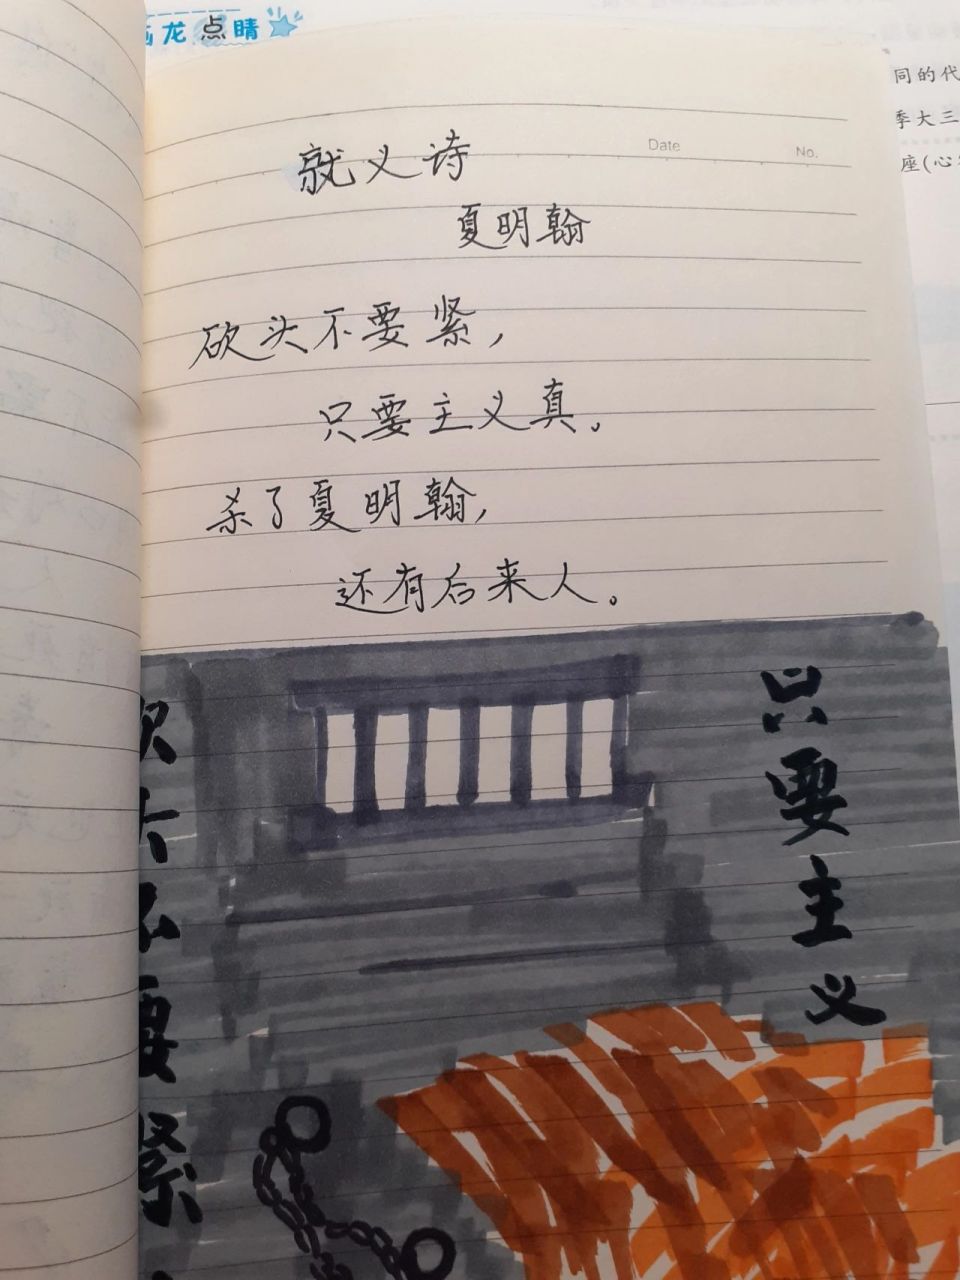 龙点睛
同的代
季大三
座(心
Date
No.
就义诗
夏明翰
砍头不要紧，
只要主义真。
杀了夏明翰，
还有后来人。
砍头不要紧
只要主义